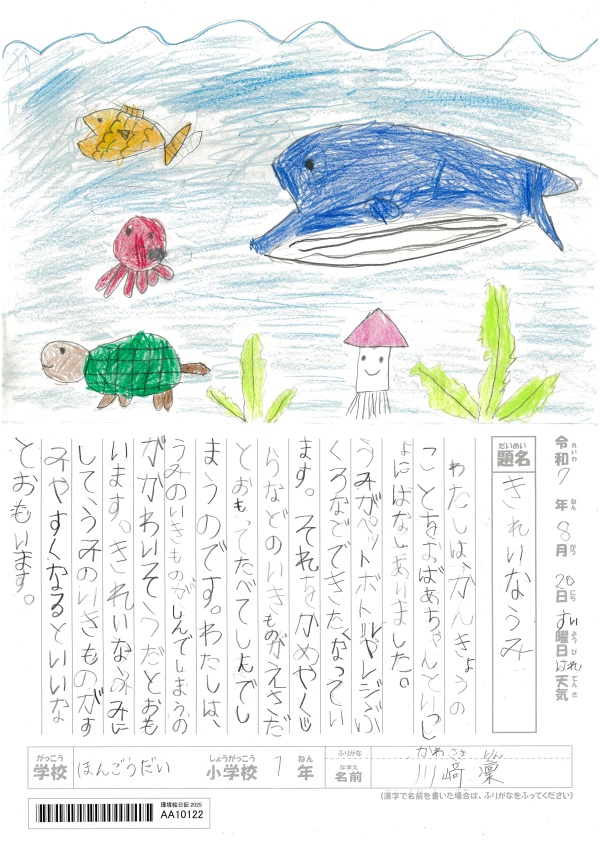 令和7年8月20日すい曜日はれ天気
れいわ ねん がつ にち ようび てんき
だいめい
題名
きれいなうみ
わたしはかんきょうの
ことをおばあちゃんといっし
ょにはなしありました。
うみがペットボトルやレジぶ
くろなどできたなくなってい
ます。それをかめやくじ
らなどのいきものがえさだ
とおもってたべてしんでし
まうのです。わたしは、
うみのいきものがしんでしまうの
がかわいそうだとおも
います。きれいなうみに
して、うみのいきものがす
みやすくなるといいな
とおもいます。
がっこう しょうがっこう ねん
学校 ほんごうだい 小学校 1年
ふりがな かわさき りん
なまえ
名前 川﨑 凜
(漢字で名前を書いた場合は、ふりがなをふってください)
環境絵日記 2025
AA10122